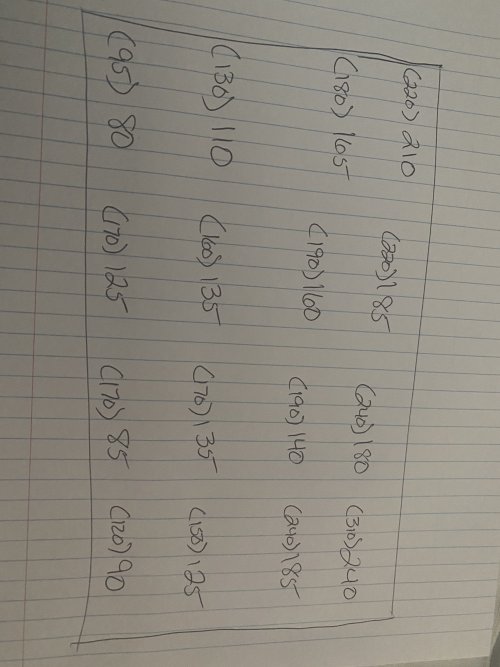 (220) 210 (220) 185 (240) 180 (310) 240
(180) 165 (190) 160 (190) 140 (240) 185
(130) 110 (160) 135 (170) 135 (150) 125
(95) 80 (170) 125 (170) 85 (120) 90